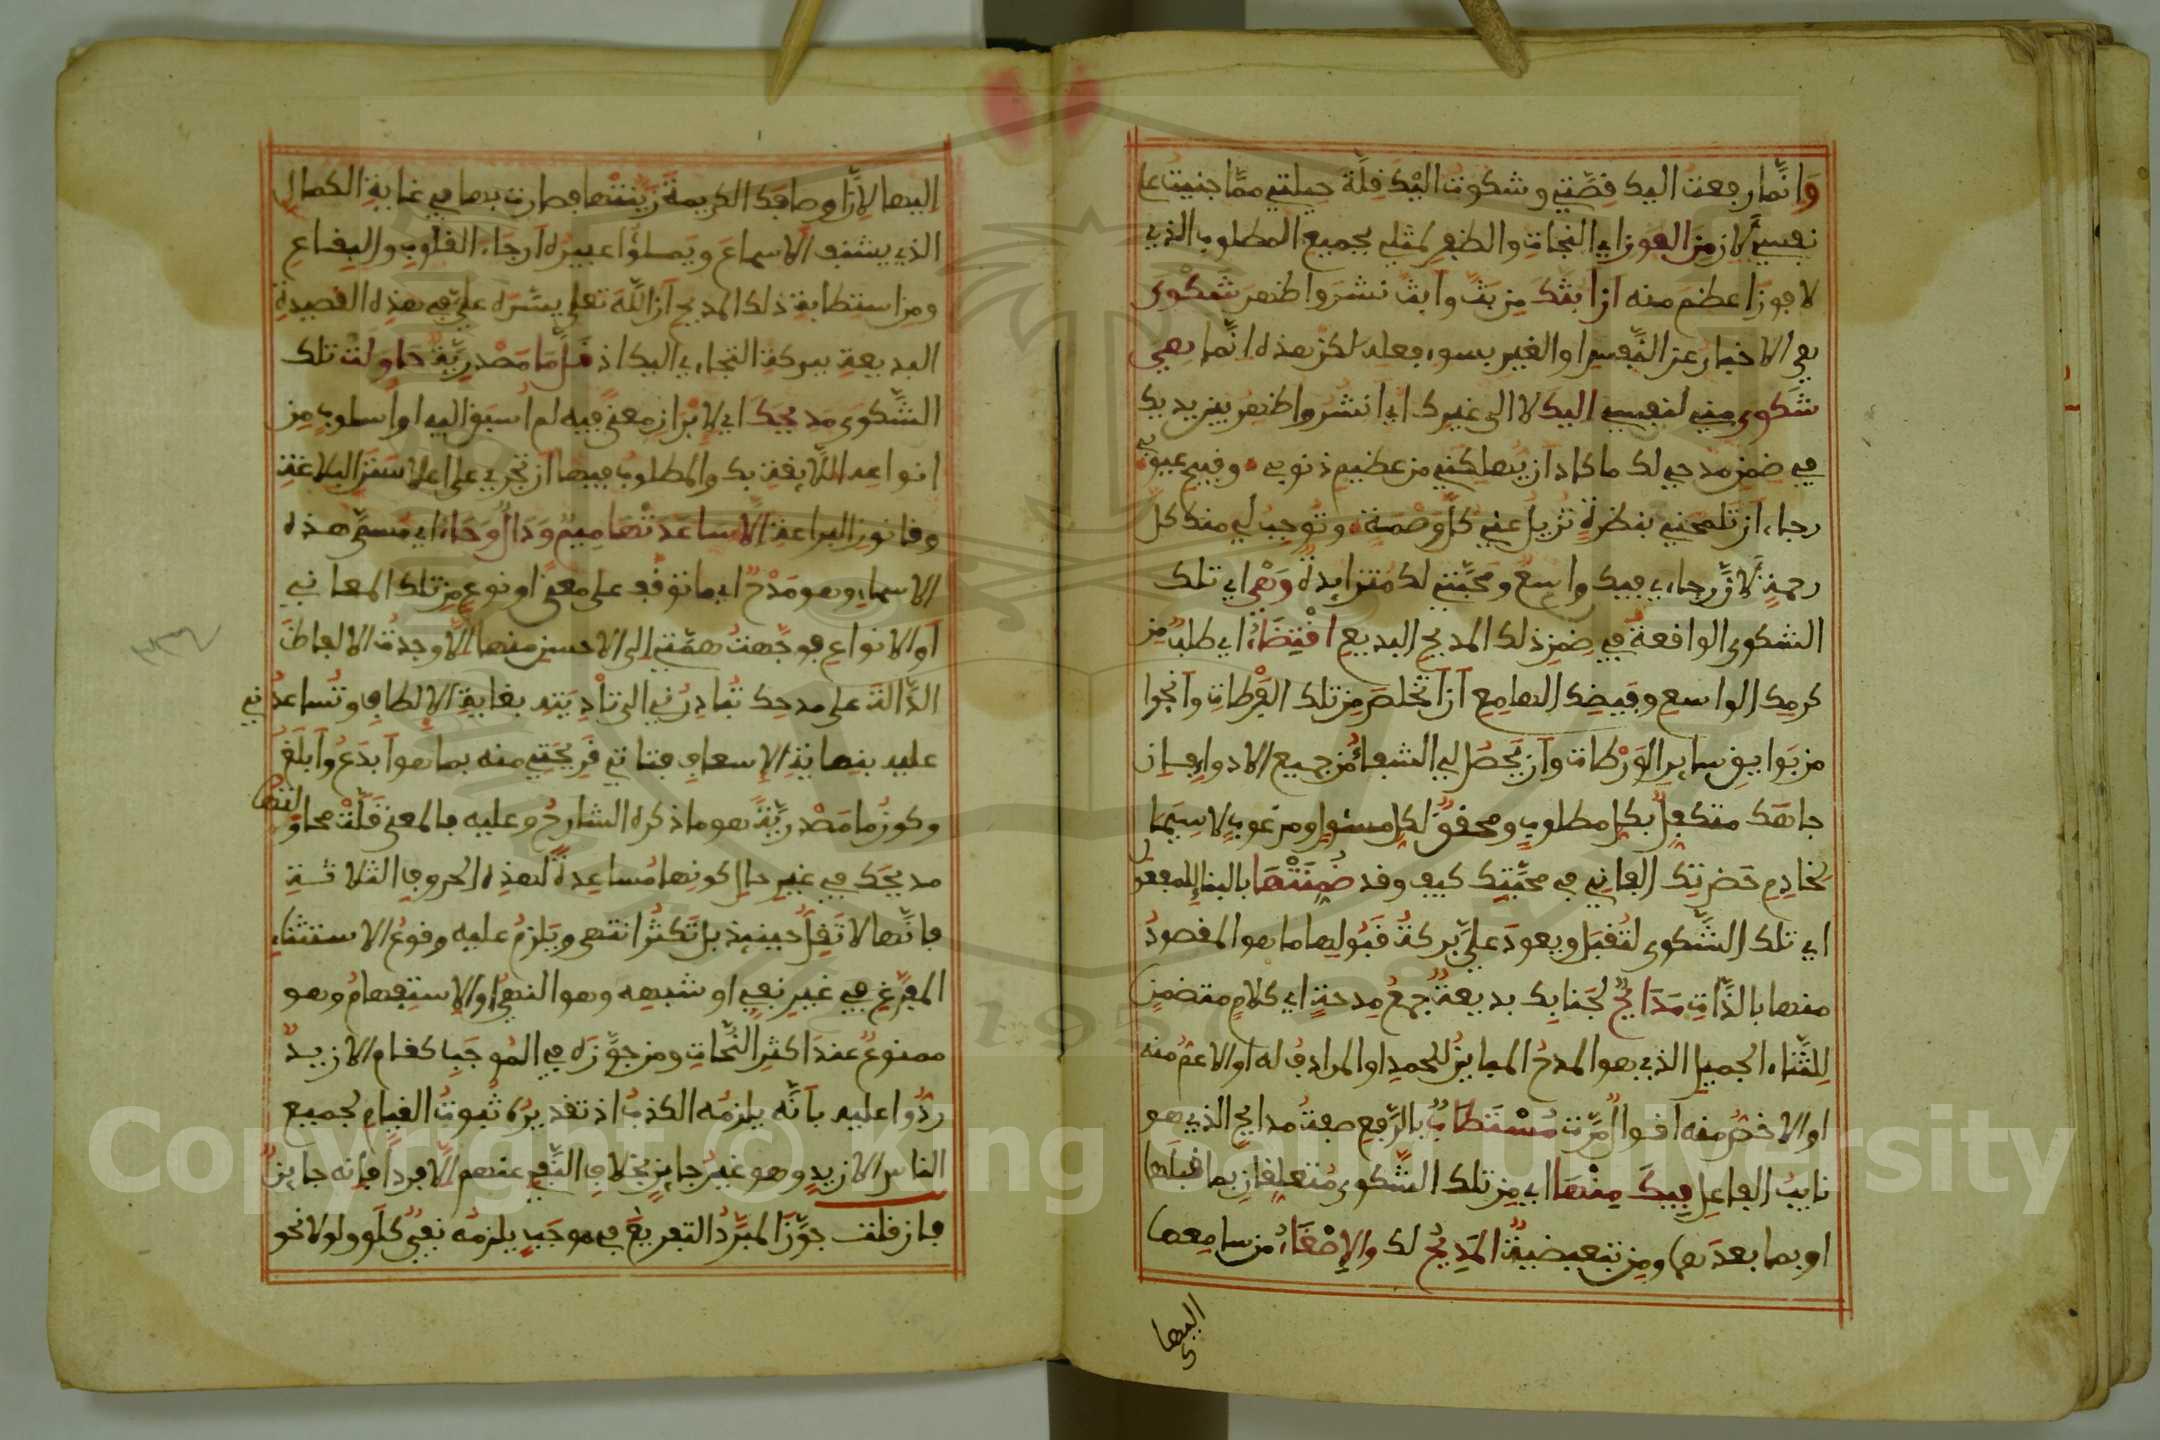 وَانَّمَا رفعتُ اليك قصّتي وشكوتُ اليْكَ قِلّةَ حيلتي ممّا جنيتُ على
نفسي لانّ من الفوز اي النجاة والظفر لمثلي بجميع المطلوب الذي
لا فوزَ اعظمَ منه ان ابثّكَ من بثّ وابثّ نشرَ واظهرَ شَكْوَى
هي الاخبار عن النّفس او الغير بسوء فعله لكن هذه انّما هي
شَكوى منّي لنفسي اليك لا الى غيرك اي انشر واظهر بين يديك
في ضمن مدحي لك ما كاد ان يُهلكني من عظيم ذنوبي وقبيح عيوبي
رجاء ان تلمحني بنظرةٍ تُزيل عنّي كلَّ وَصْمَةٍ وتُوجِبُ لي منك كلّ
رحمةٍ لانّ رجاءي فيك واسعٌ ومحبّتي لك متزايدةٌ وَهْيَ اي تلك
الشكوى الواقعة في ضمن ذلك المديح البديع اقْتِضَاءٌ اي طلبٌ من
كرمك الواسع وفيضك الهامع ان اتخلّصَ من تلك الفَرْطات وانجوا
من بَوايق ساير الوَرْطات وان يَحصُل لي الشفاءُ من جميع الادواء فان
جاهَك متكفّلٌ بكل مطلوب ومحققٌ لكل مسئول ومرغوب لا سِيَما
لخادم حَضرتِك الفاني في محبّتِك كيف وقد ضُمِّنَتْهَا بالبناءِ للمفعول
اي تلك الشَّكوى لتُقبَل ويعودَ عليَّ بركةُ قَبُولِها ما هو المقصودُ
منها بالذّات مَدَايحٌ لجَنابِك بديعةٌ جمعُ مِدحةٍ اي كلام متضمن
لِلثّناء الجميل الذي هو المدحُ المباينُ للحمد او المرادفُ له او الاعمّ منه
او الاخصّ منه اقوالٌ مرّت مُسْتَطَابٌ بالرّفع صفةُ مدايح الذي هو
نايبُ الفاعل فِيكَ مِنْهَا اي من تلك الشّكوى مُتعلقان بما قبلَها
او بما بعدَها ومن تبعيضيةٌ المَدِيحُ لك والاِصْغَاءُ من سامعها
اليها
اليها لانَّ اوصافَك الكريمةَ زَيّنتْها فصارت بها في غاية الكمال
الذي يشنّف الاسماعَ ويَملؤا عبيرُه ارجاءَ القلوب والبقاع
ومن استطابة ذلك المديح انّ اللّهَ تعلى يسّرَه عليّ في هذه القصيدة
البديعة ببركة التجاءي اليك اذ قَلَّمَا مَصْدريّةٌ حَاوَلَتْ تلك
الشّكوَى مَدِيحَكَ اي لابراز معنًى فيه لم اُسبق اليه او اسلوب من
انواعه اللّايقة بك والمطلوبُ فيها ان تجري على اعلا سَنن البلاغة
وقانون البراعة الاّ سَاعَدَتْهَا مِيمٌ وَدَالٌ وَحَاءٌ اي مُسمّى هذه
الاسماء وهو مَدْحٌ اي ما توقّف على معنًى او نوع من تلك المعاني
او الانواع فوجّهتُ همّتي الى الاحسن منها الّا وجدتُ الالفاظَ
الدّالةَ على مدحك تُبادِرُني الى تأدِيَتِه بغاية الالطاف وتُساعدُني
عليه بنهاية الاسعاف فتاتي قَريحَتي منه بما هو ابدَعُ وابلَغُ
وكونُ ما مَصْدريّةً هو ما ذكره الشارحُ وعليه فالمعنى قلّتْ محاولتها
مديحَك في غير حال كونها مُساعِدةً لهذه الحروف الثلاثة
فانّها لا تَقِلُّ حينيذ بل تَكثُرُ انتهى ويَلزمُ عليه وقوعُ الاستثناء
المفرّغ في غير نفي او شبهه وهو النهيُ او الاستفهامُ وهو
ممنوعٌ عندَ اكثر النُّحاة ومن جوّزه في المُوجَب كقام الا زيدٌ
ردُّوا عليه بانّه يلزمُه الكذبُ اذ تقديرُه ثبوتُ القيام لجميع
الناس الا زيد وهو غيرُ جايزٍ بخلاف النّفي عنهم الّا فرداً فانه جايزٌ
فان قلت جوّزَ المبرّدُ التفريغَ في موجَب يلزمُه نفيٌ كلَو ولولا نحو